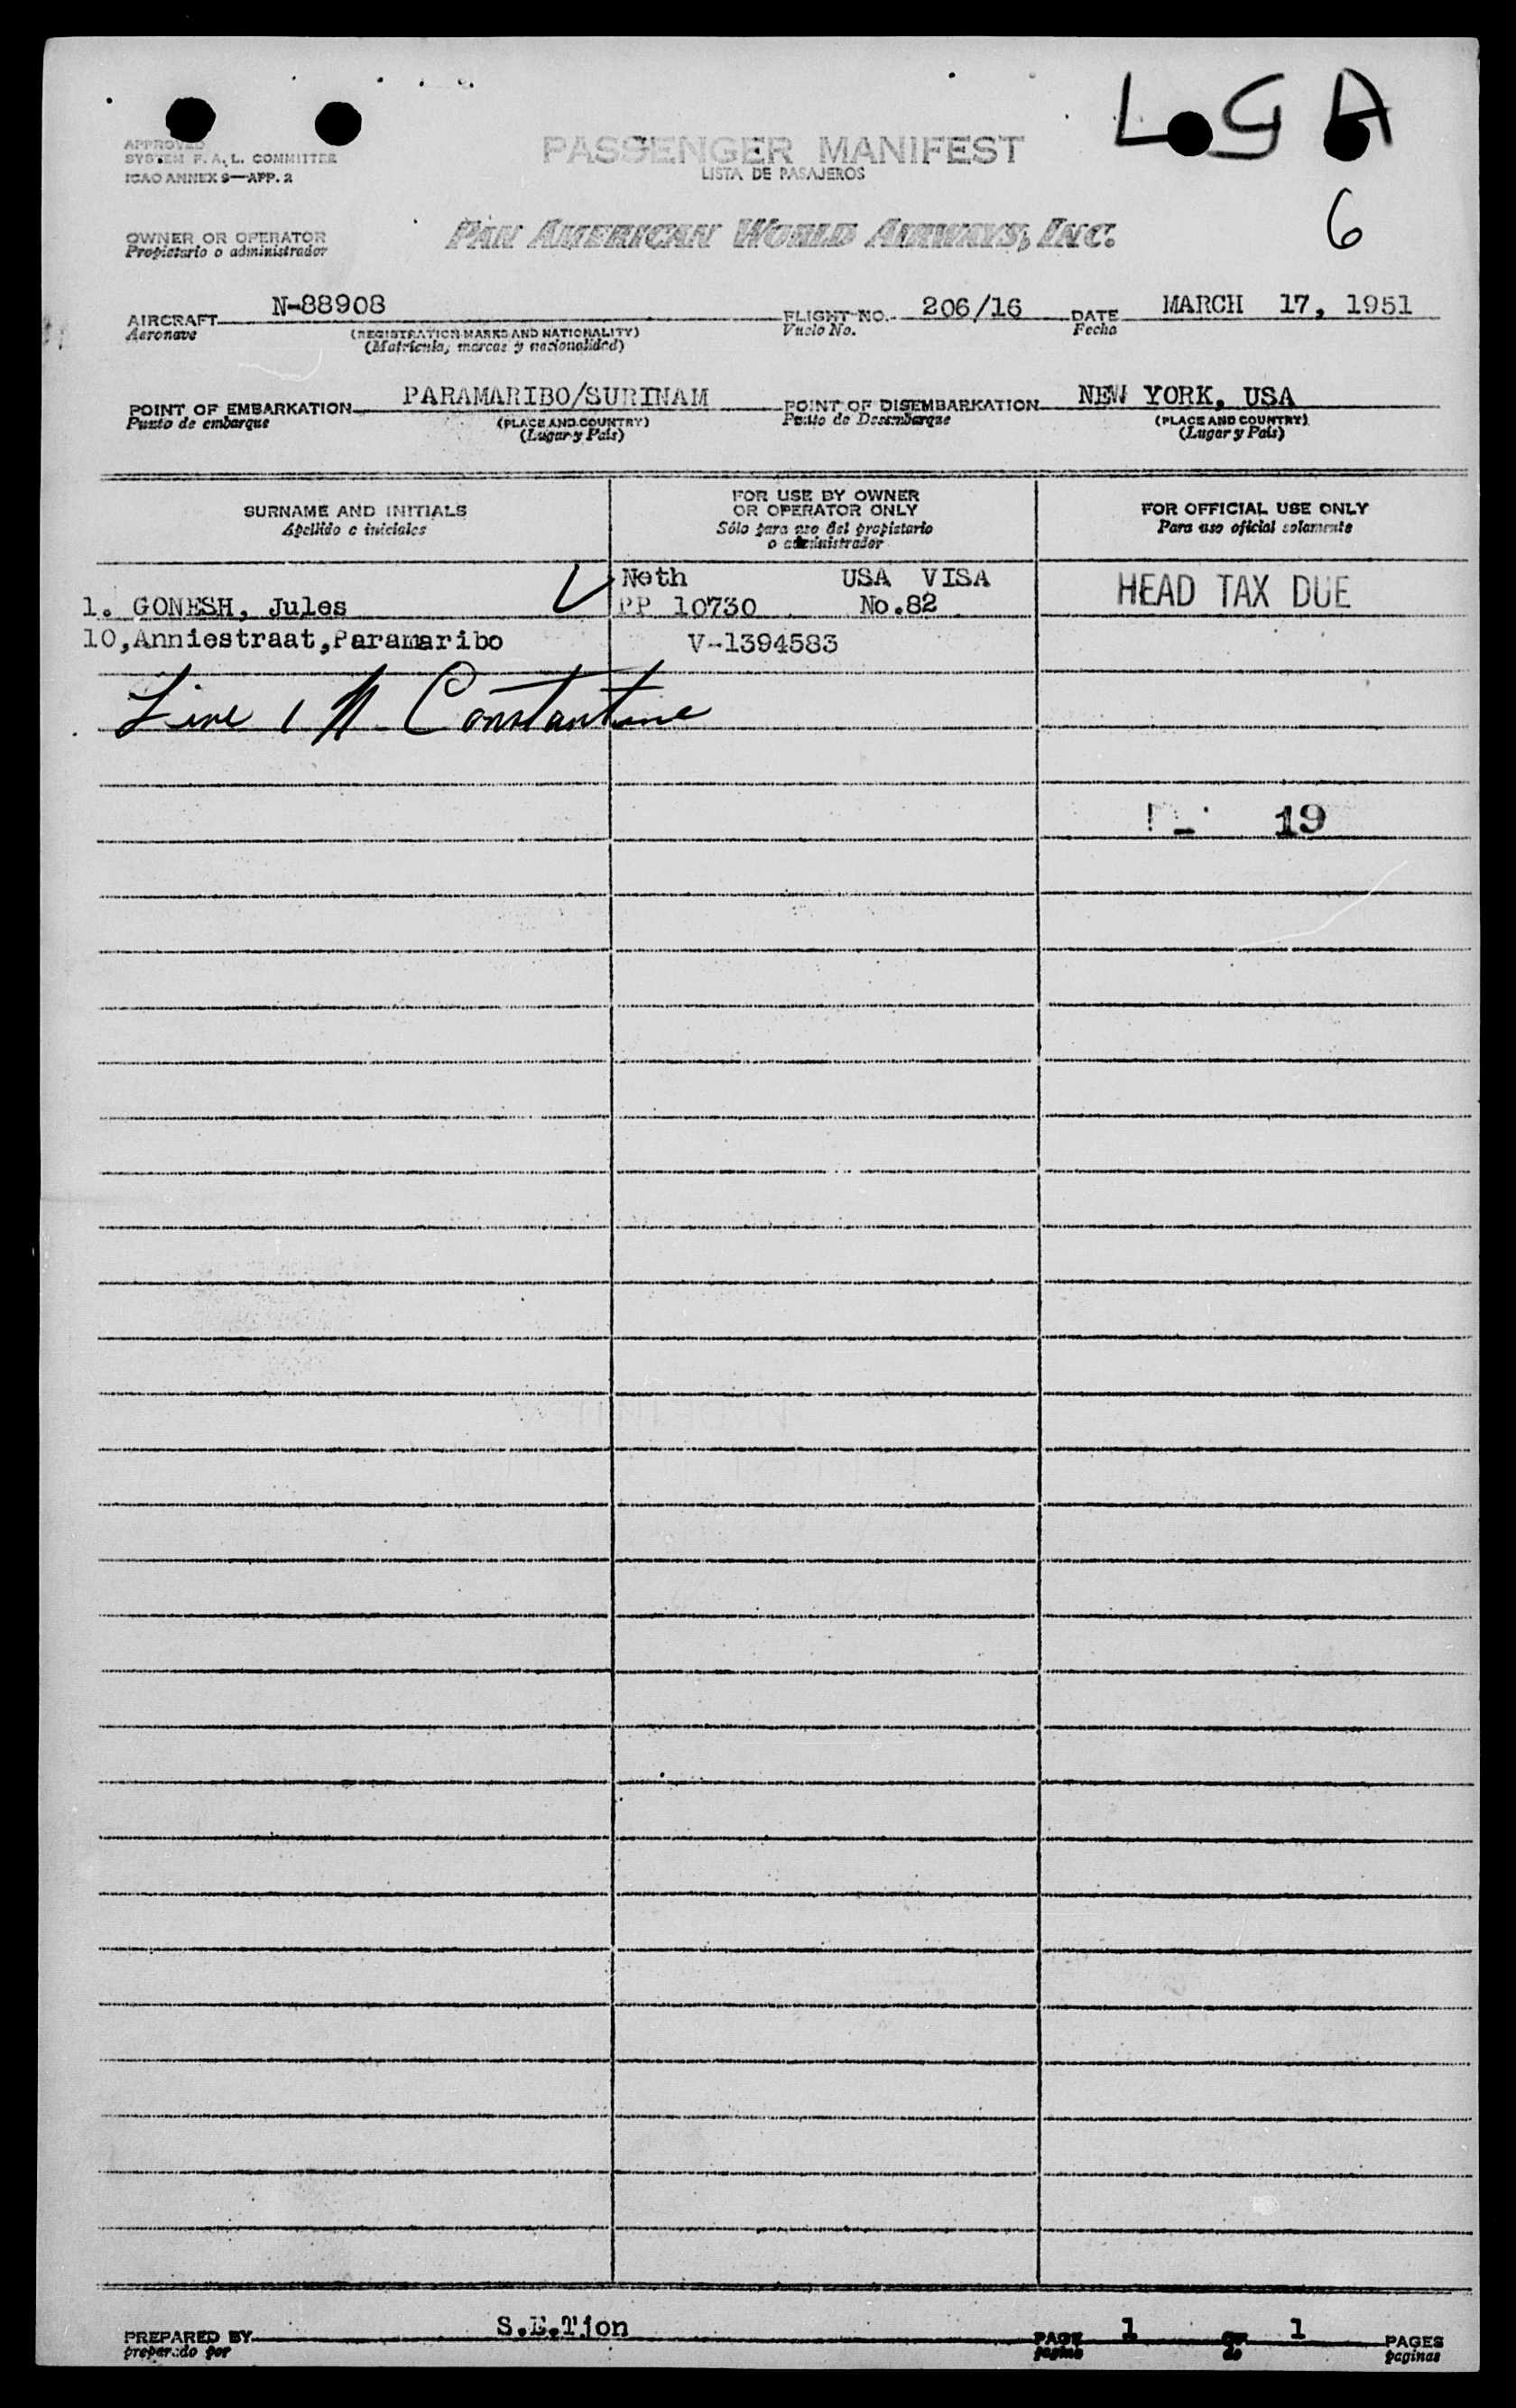 L G A
APPROVED
SYSTEM F. A. L. COMMITTEE
ICAO ANNEX 9—APP. 2
PASSENGER MANIFEST
LISTA DE PASAJEROS
6
OWNER OR OPERATOR
Propietario o administrador
PAN AMERICAN WORLD AIRWAYS, INC.
AIRCRAFT N-88908 FLIGHT NO. 206/16 DATE MARCH 17, 1951
Aeronave (REGISTRATION MARKS AND NATIONALITY) Vuelo No. Fecha
(Matrícula, marcas y nacionalidad)
POINT OF EMBARKATION PARAMARIBO/SURINAM POINT OF DISEMBARKATION NEW YORK, USA
Punto de embarque (PLACE AND COUNTRY) Punto de Desembarque (PLACE AND COUNTRY)
(Lugar y País) (Lugar y País)
SURNAME AND INITIALS FOR USE BY OWNER OR OPERATOR ONLY FOR OFFICIAL USE ONLY
Apellido e iniciales Sólo para uso del propietario o administrador Para uso oficial solamente
Neth USA VISA
1. GONESH, Jules PP 10730 No.82 HEAD TAX DUE
10,Anniestraat,Paramaribo V-1394583
Line 1 Constantine
19
PREPARED BY S.E.Tjon PAGE 1 OF 1 PAGES
preparado por pagina de paginas